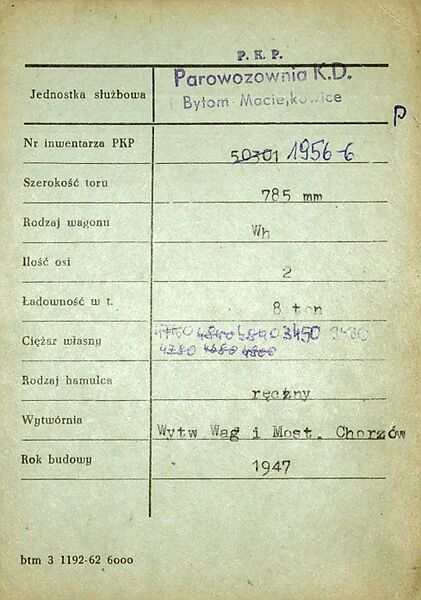 P. K. P.
Jednostka służbowa
Parowozownia K.D.
Bytom Maciejkowice
P
Nr inwentarza PKP 50301 1956-6
Szerokość toru 785 mm
Rodzaj wagonu Wh
Ilość osi 2
Ładowność w t. 8 ton
Ciężar własny 3450 3430
Rodzaj hamulca ręczny
Wytwórnia Wytw Wag i Most. Chorzów
Rok budowy 1947
btm 3 1192-62 6000